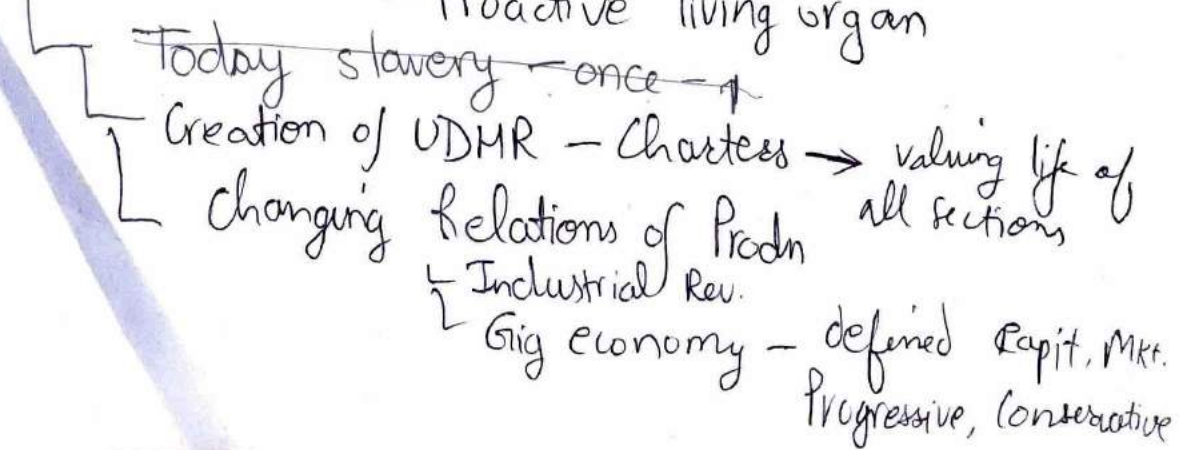 Proactive living organ
Today slavery - once -
Creation of UDHR - Charters → valuing life of all sections
Changing Relations of Prodn
Industrial Rev.
Gig economy - defined Capit. Mkt.
Progressive, Conservative